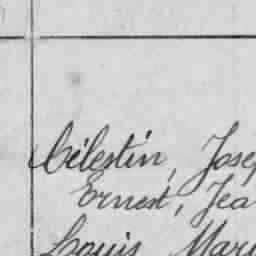 Célestin, Josep
Ernest, Jea
Louis Mary